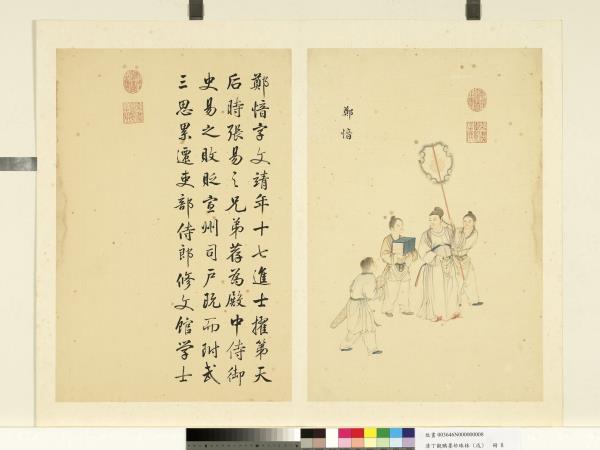 鄭愔
鄭愔字文靖年十七進士擢第天
后時張易之兄弟荐為殿中侍御
史易之敗貶宣州司戶既而附武
三思累遷吏部侍郎修文館学士
故畫 003646N000000008
清丁觀鵬墨妙珠林（戌） 冊 8